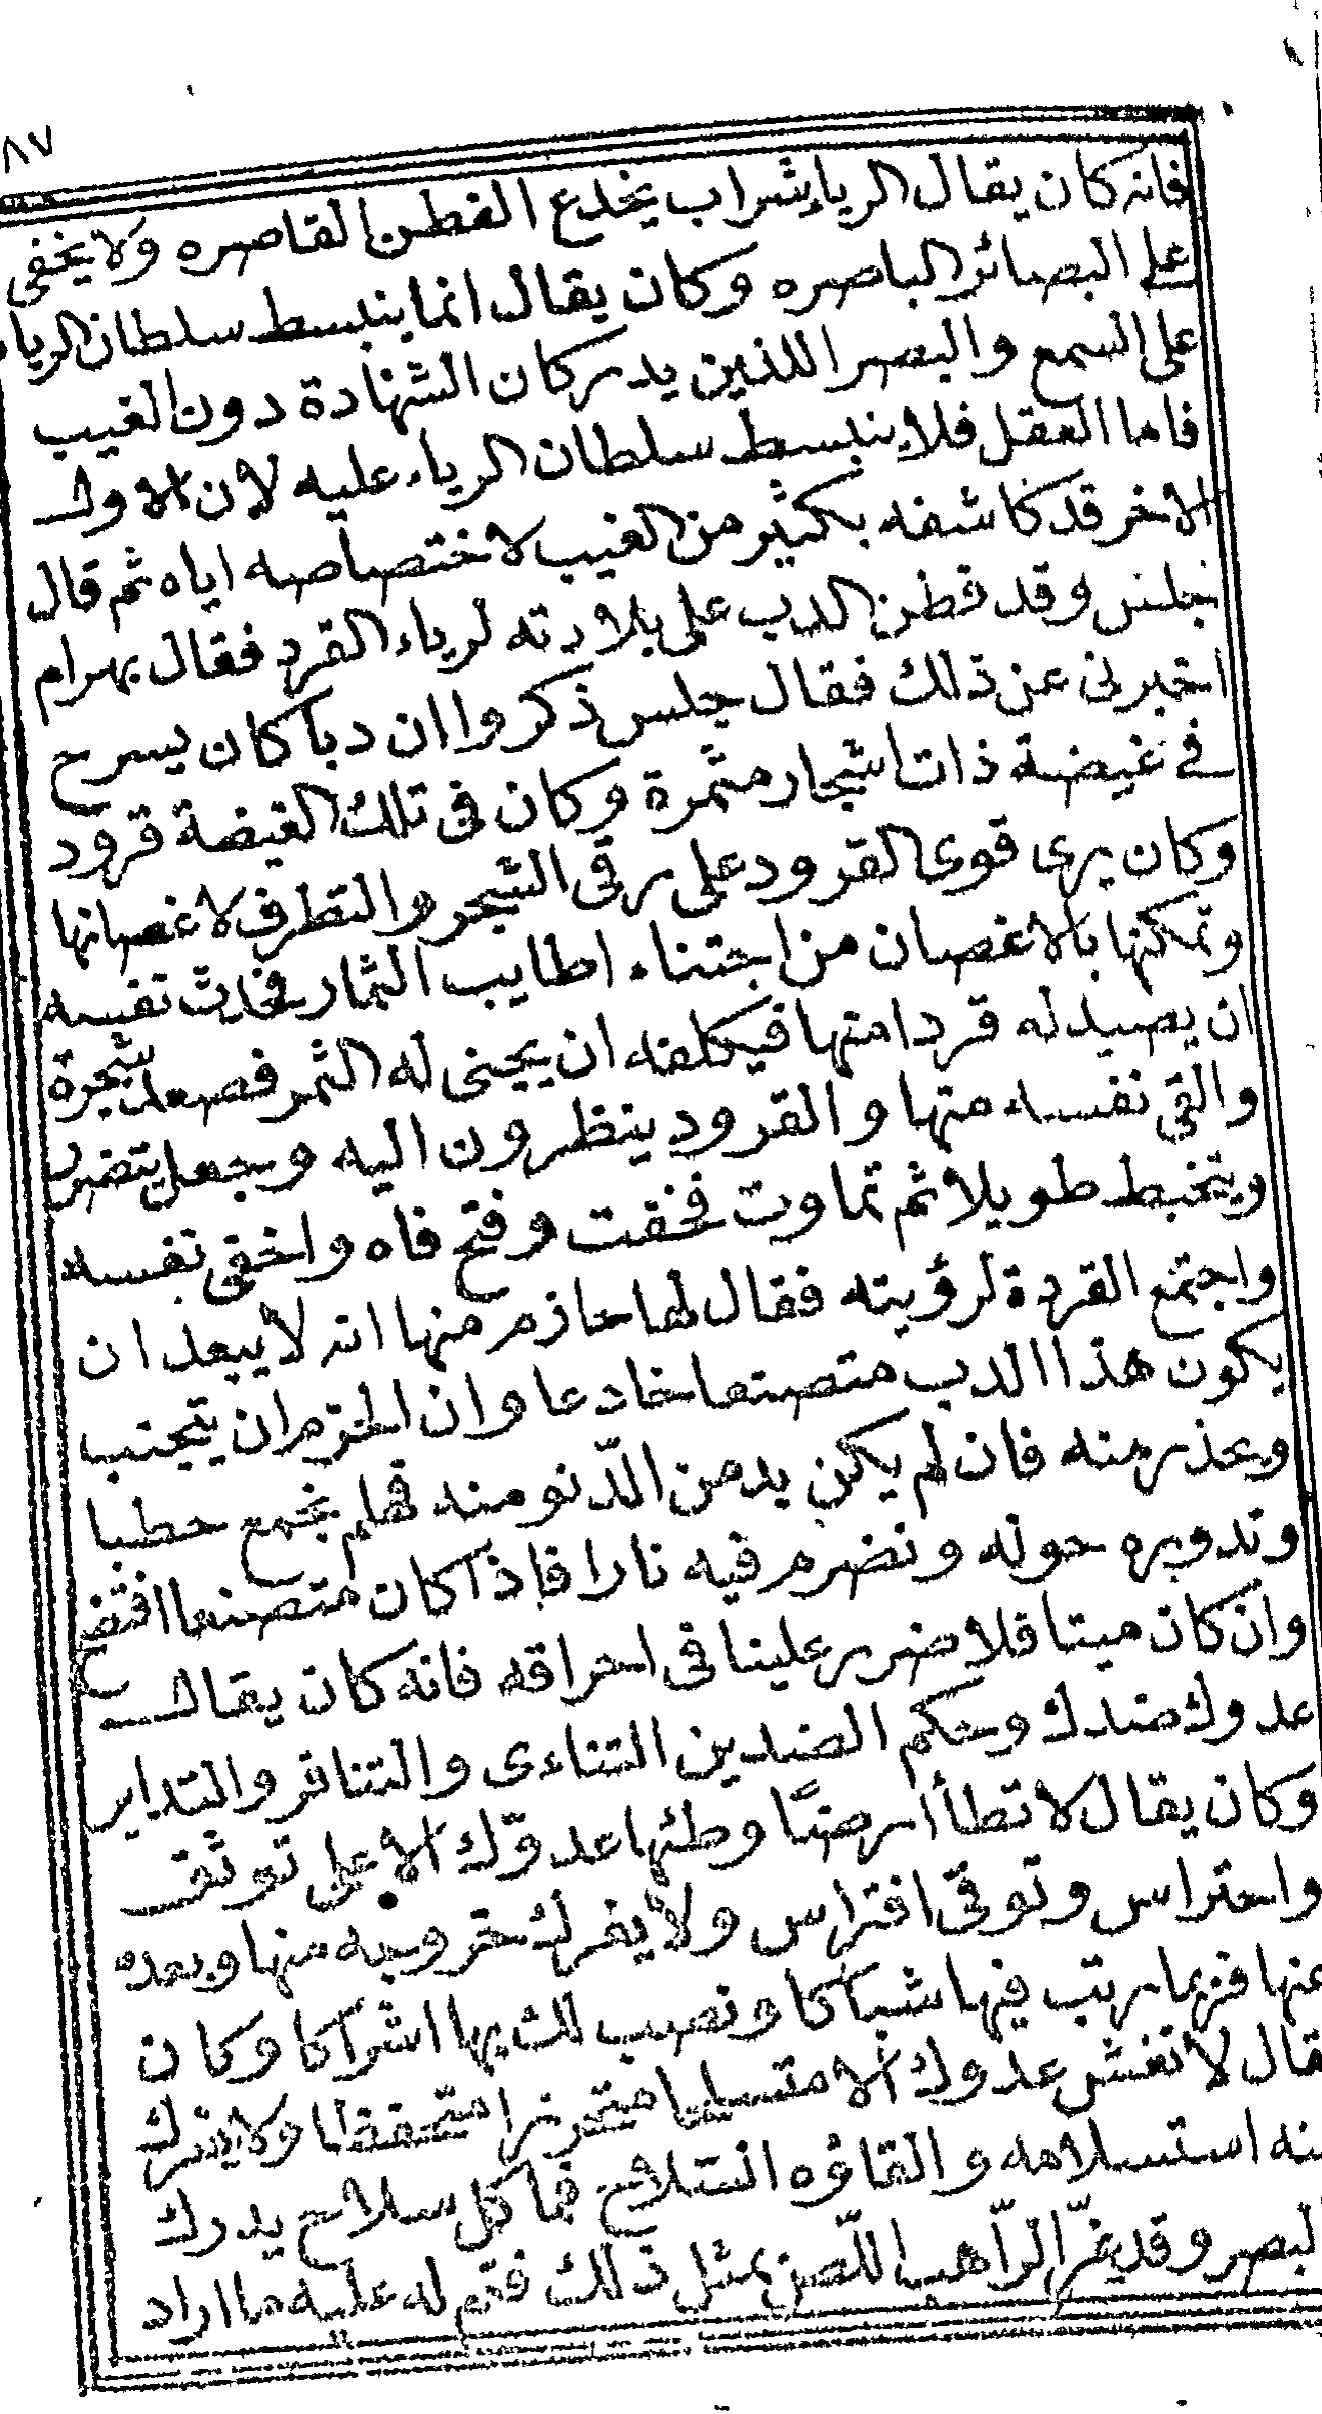 ٨٧
فانه كان يقال الرياء شراب يخدع الفطن القاصره ولا يخفى
على البصائر الباصره وكان يقال انما ينبسط سلطان الرياء
على السمع والبصر اللذين يدركان الشهادة دون الغيب
فاما العقل فلا ينبسط سلطان الرياء عليه لان الاول
الاخر قد كاشفه بكثير من الغيب لاختصاصه اياه ثم قال
جلس وقد فطن الدب على بلادته لرياء القرد فقال بهرام
اخبرنى عن ذلك فقال جلس ذكروا ان دبا كان يسرح
فى غيضة ذات اشجار مثمرة وكان فى تلك الغيضة قرود
وكان يرى قوى القرود على رقى الشجر والتطرف لاغصانها
وتمكنها بالاغصان من اجتناء اطايب الثمار فحدث نفسه
ان يصيد له قردا منها فيكلفه ان يجنى له الثمر فصعد شجرة
والقى نفسه منها والقرود ينظرون اليه وجعل يتضرب
ويتخبط طويلا ثم تماوت فخفت وفتح فاه واخفى نفسه
واجتمع القردة لرؤيته فقال لها حازم منها انه لا يبعد ان
يكون هذا الدب متصنعا خادعا وان الحزم ان يتجنب
ويحذر منه فان لم يكن بد من الدّنو منه فهلم نجمع حطبا
وتدويره حوله ونضرم فيه نارا فاذا كان متصنعا افتضح
وان كان ميتا فلا ضرر علينا فى احراقه فانه كان يقال
عدوك ضدك وحكم الضدين التناءى والتنافر والتدابر
وكان يقال لا تطأ أرضًا وطئها عدوّك الا على توثق
واحتراس وتوقى افتراس ولا يغرك خروجه منها وبعده
عنها فربما رتب فيها شباكا ونصب لك بها اشراكا وكان
يقال لا تغش عدوك الا متسلحا متحرزا متحفظا ولا يغرك
منه استسلامه والقاؤه السّلاح فما كل سلاح يدرك
البصر وقد غرّ الرّاهب اللّص بمثل ذلك فتم له عليه ما اراد